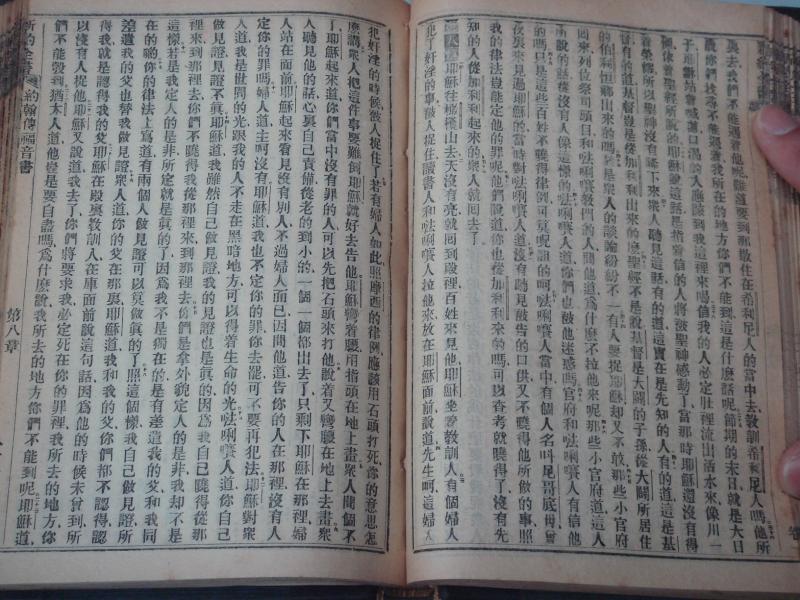 裏去我們不能遇着他呢難道要到那散住在希利足人的當中去教訓希利足人嗎他所
說你們找尋不能遇着我所在的地方你們不能到這是什麼話呢節期的末日就是大日
子耶穌站着喊道口渴的人應該到我這裡來喝信我的人必定肚裡流出活水來像川一
樣依着聖經所說的耶穌說這話是指着信的人將被聖神感動了當那時耶穌還沒有得
着榮修所以聖神沒有降下來衆人聽見這話有的道這實在是先知的人有的道這是基
督有的道基督豈是從加利利出來的麼聖經不是說基督是大闢的子孫從大闢所居住
的伯利恒鄉出來的嗎於是衆人的談論紛紛不一有人要捉耶穌却又不敢那些小官府
回來列位祭司頭目和法唎賽教門的人問他道爲什麼不拉他來呢那些小官府道這人
所說的話從沒有人像這樣的法唎賽人道你們也被他迷惑嗎官府和法唎賽人有信他
的嗎只是這些百姓不曉得律例可是呢詛的呵法唎賽人當中有個人名叫尼哥底母曾
夜裏來見過耶穌的當時對法唎賽人道沒有聽見被告的口供又不曉得他所做的事照
我的律法豈能定他的罪呢他們說道你也從加利利來的嗎可以查考就曉得了沒有先
知的人從加利利起來的衆人就回去了
耶穌往橄欖山去天沒有亮就回到殿裡百姓來見他耶穌坐着教訓人有個婦人
犯了奸淫的事被人捉住讀書人和法唎賽人拉他來放在耶穌面前說道先生呵這婦人
犯奸淫的時候被人捉住了若有婦人如此照摩西的律例應該用石頭打死你的意思怎
麼講衆人把這件事要難倒耶穌就好去告他耶穌彎着腰用指頭在地上畫衆人問個不
了耶穌起來道你們當中沒有罪的人可以先把石頭來打他說着又彎腰在地上去畫衆
人聽見他的話心裏自己責備從老的到小的一個一個都出去了只剩下耶穌在那裡婦
人站在面前耶穌起來看見沒有別人不過婦人而已因問他道告你的人在那裡沒有人
定你的罪嗎婦人道主呵沒有耶穌道我也不定你的罪你去罷可不要再犯法耶穌對衆
人道我是世間的光跟我的人不走在黑暗地方可以得着生命的光法唎賽人道你自己
做見證不眞耶穌道我雖然自己做見證我的見證也是眞的因爲我曉得從那
裡來到那裡去你們不曉得我從那裡來到那裡去你們是拿外貌定人的是非我却不是
這樣若是我定人的是非所定就是眞的了因爲我不是獨在的是有差遣我的父和我同
在的喲你的律法上寫道有兩個人做見證可以算做眞的了照這個樣我自己做見證所
差遣我的父也替我做見證衆人道你的父在那裏耶穌道我和我的父你們都不認得認
得我就是認得我的父耶穌在殿裏教訓人在庫面前說這句話因爲他的時候未曾到所
以沒有人捉他耶穌又說道我去了你們將要求我必定死在你的罪裡我所去的地方你
們不能彀到猶太人道他豈是要自盡嗎爲什麼說我所去的地方你們不能到呢耶穌道
約翰傳福音書
第八章